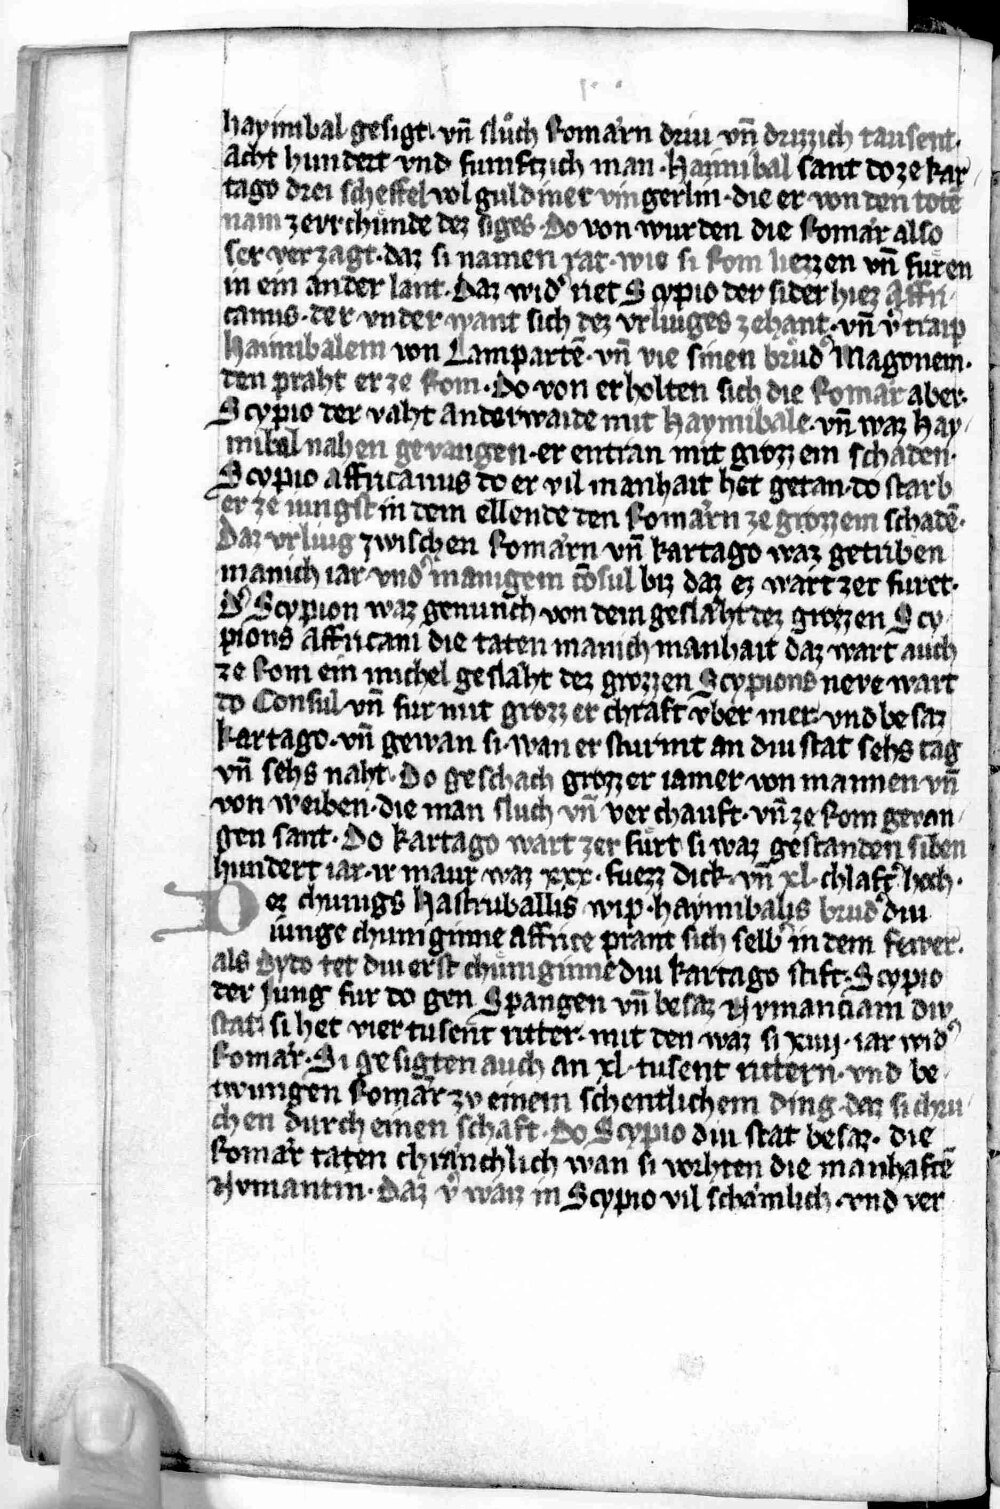 haymibal gesigt · vñ slůch Romärn driu vñ drizzich tausent ·
acht hundert vnd funftzich man · Hannibal sant do ze kar
tago drei scheffel vol guldiner vingerlin · die er von den totē
nam ze vrchünde dez siges · Do von wurden die Romär also
ser verzagt · daz si namen rat · wie si Rom liezzen vñ füren
in ein ander lant · Daz widˀ riet Scypio der sider hiez Affri
canus · der vnder want sich dez vrliuges zehant · vñ vˀtraip
Hannibalem von Lampartē · vñ vie sinen brůdˀ Magonem ·
den praht er ze Rom · Do von erholten sich die Romär aber ·
Scypio der vaht anderwaide mit Haymibale · vñ waz Hay
mibal nahen gevangen · er entran mit grozzem schaden ·
Scypio affricanus do er vil manhait het getan · do starb
er ze iungst in dem ellende den Romärn ze grozzem schadē ·
Daz vrliug zwischen Romärn vñ kartago waz getriben
manich iar · vndˀ manigem cōsul biz daz ez wart zer furet ·
Dˀ Scypion waz genunch von dem geslaht dez grozzen Scy
pions Affricani die taten manich manhait daz wart auch
ze Rom ein michel geslaht dez grozzen Scypions neve wart
do Consul vñ fur mit grozzer chraft vber mer · vnd besaz
kartago · vñ gewan si · wan er sturmt an diu stat sehs tag
vñ sehs naht · Do geschach grozzer iamer von mannen vñ
von weiben · die man sluch vñ verchauft · vñ ze Rom gevan
gen sant · Do kartago wart zer fürt si waz gestanden siben
hundert iar · ir maur waz xxx · fuezz dick · vñ xl · chlaftˀ hoch ·
Dez chunigs Hastruballis wip · haymibalis brudˀ diu
iunge chuniginne affrice prant sich selbˀ in dem fewer ·
als Dydo tet diu erst chüniginne diu kartago stift · Scypio
der Jung fur do gen Spangen vñ besaz Nvmanciam diu
stat · si het vier tusent ritter · mit den waz si xiiij · iar widˀ
Romär · Si gesigten auch an xl · tusent rittern · vnd be
twungen Romär zv einem schentlichem ding · daz si chru
chen durch einen schaft · Do Scypio diu stat besaz · die
Romär taten chränchlich wan si vorhten die manhaftē
Nvmantin · Daz vˀwaiz in Scypio vil schämlich · vnd ver